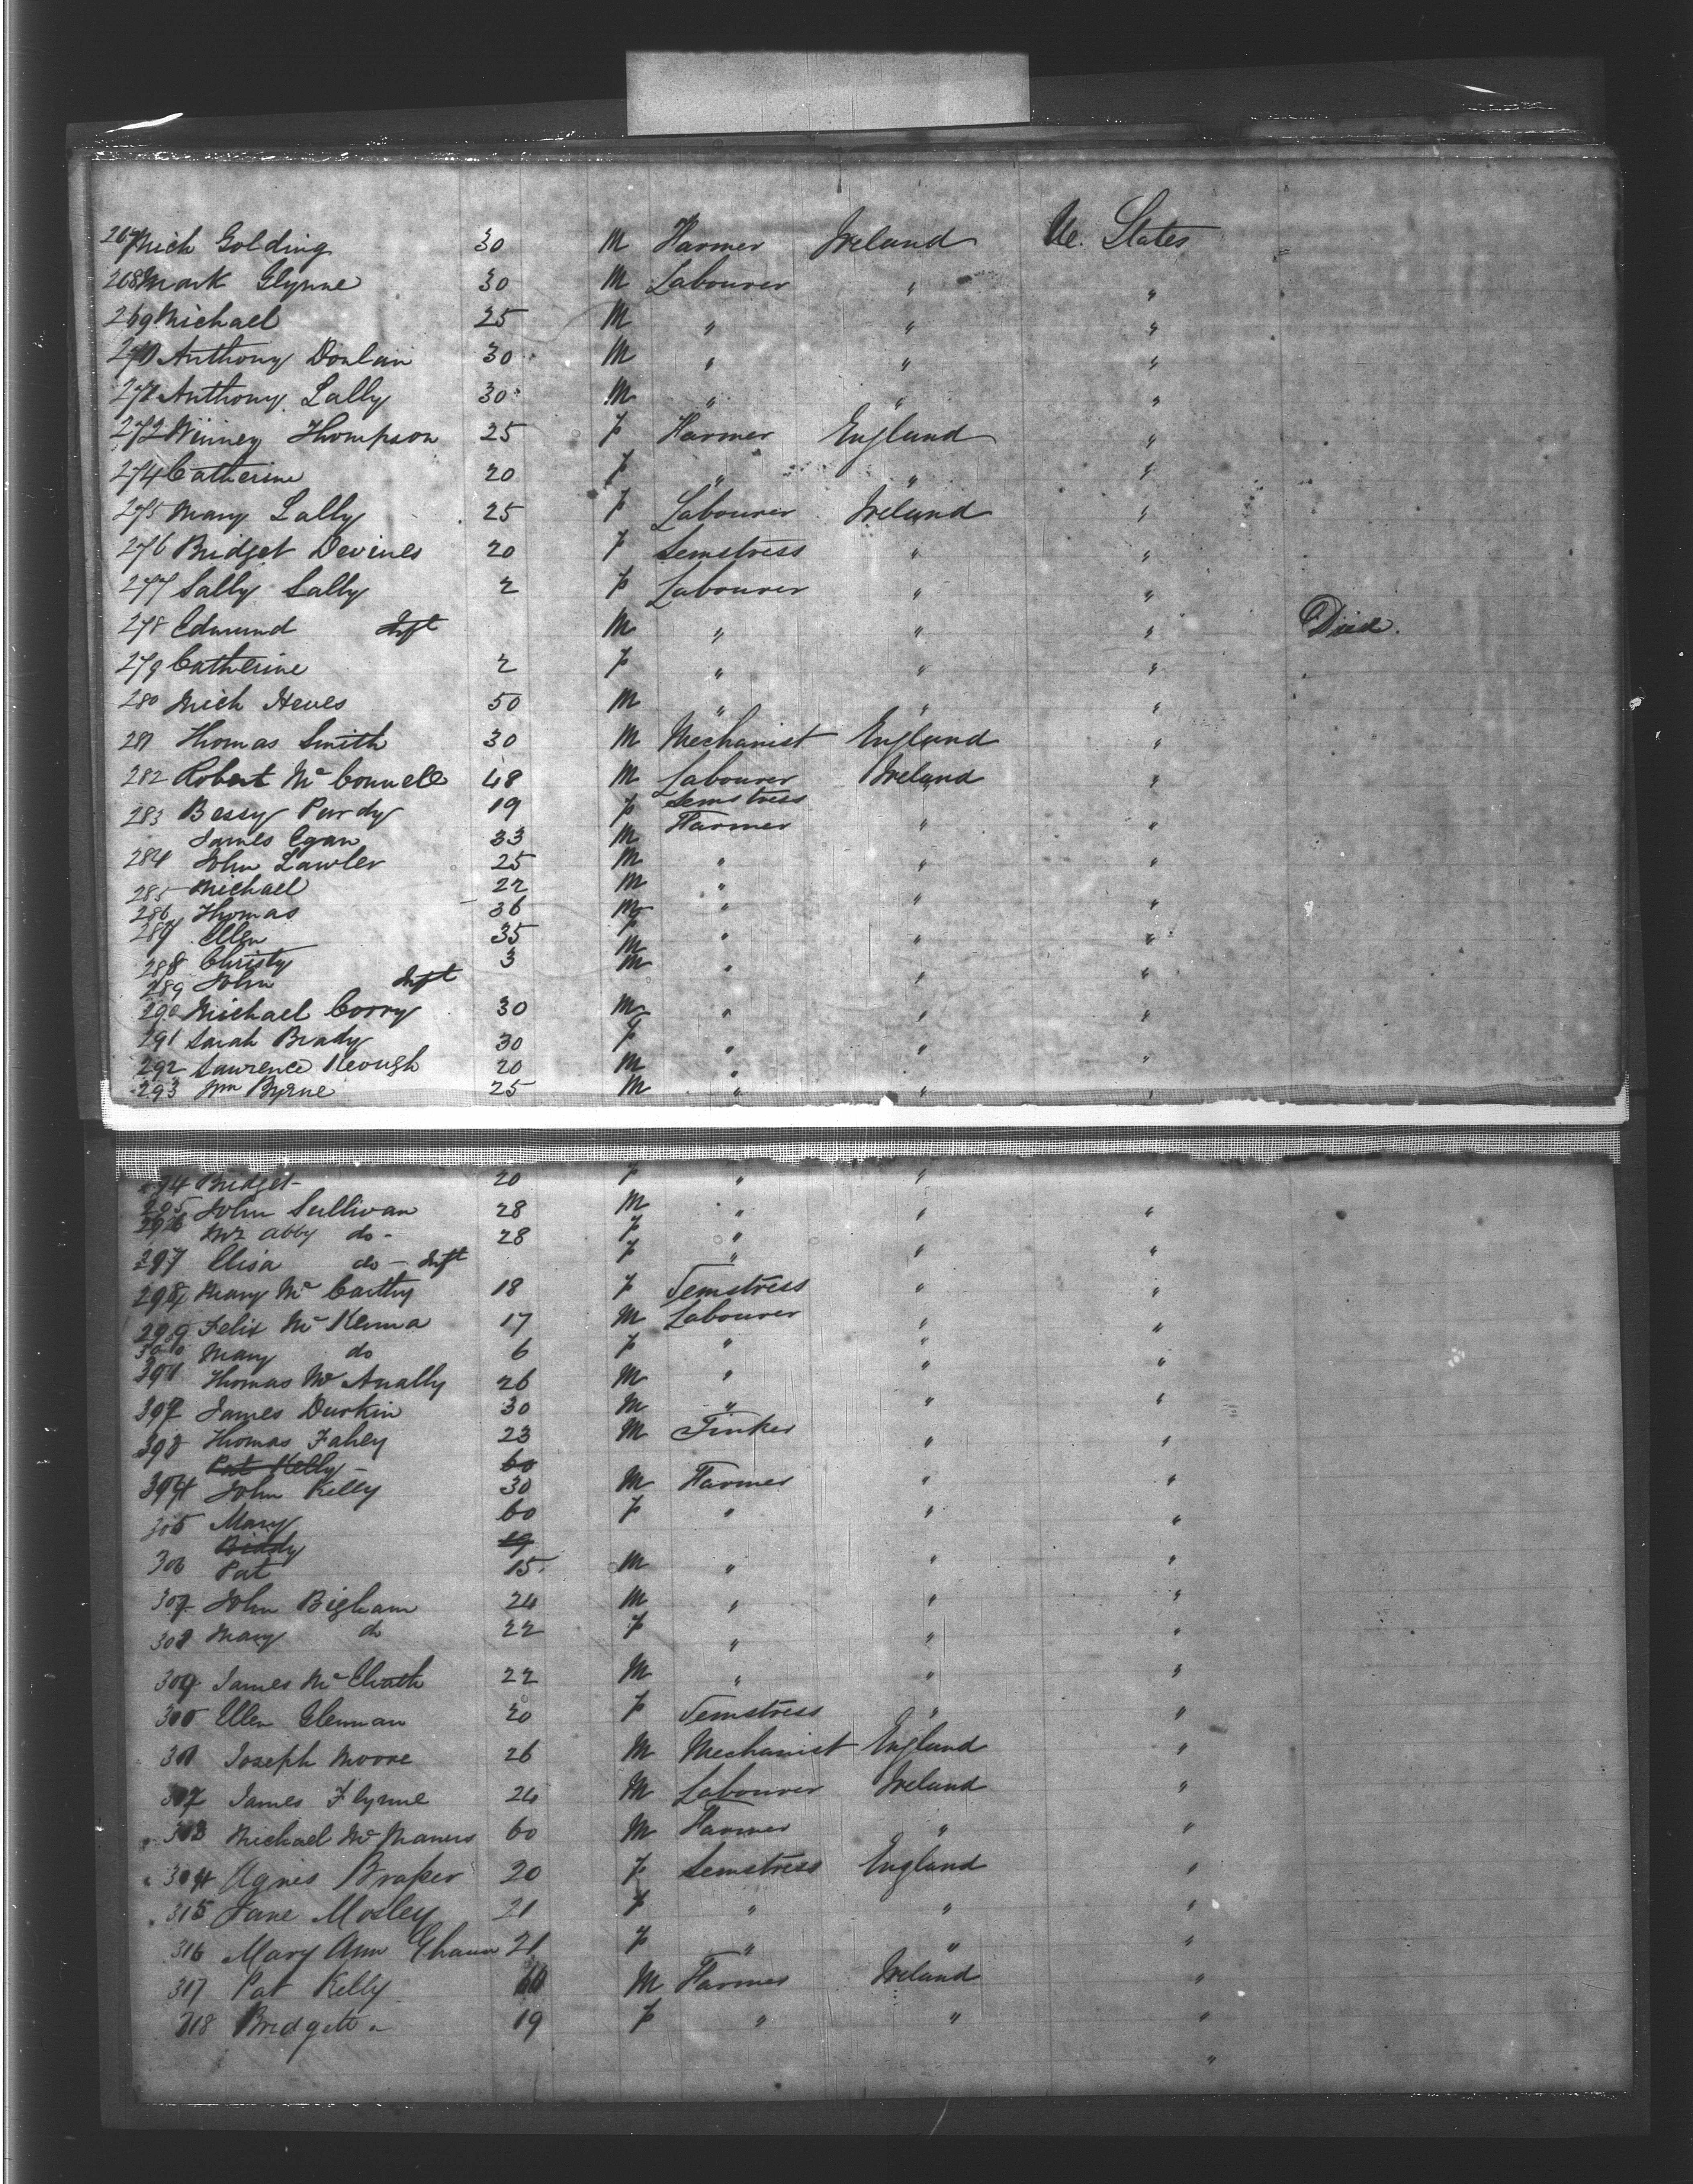 267 Mich Golding 30 M Farmer Ireland U. States
268 Mark Glynne 30 M Labourer " "
269 Michael 25 M " " "
270 Anthony Donlan 30 M " " "
271 Anthony Lally 30 M " " "
272 Winney Thompson 25 f Farmer England "
274 Catherine 20 f " " "
275 Mary Lally 25 f Labourer Ireland "
276 Bridget Devines 20 f Semstress " "
277 Sally Lally 2 f Labourer " "
278 Edmund Inft M " " " Died.
279 Catherine 2 f " " "
280 Mich Heves 50 M " " "
281 Thomas Smith 30 M Mechanist England "
282 Robert McConnell 48 M Labourer Ireland "
283 Bessy Purdy 19 f Semstress
James Egan 33 M Farmer " "
284 John Lawler 25 M " " "
285 Michael 22 M "
286 Thomas 36 M " " "
287 Ellen 35 f " " "
288 Christy 3 M
289 John Inft M " " "
290 Michael Corry 30 M " " "
291 Sarah Brady 30 f " "
292 Lawrence Keough 20 M " "
293 Wm Byrne 25 M " " "
294 Bridget 20 f " "
295 John Sullivan 28 M " " "
296 Mrs Abby do - 28 f "
297 Elisa do - Inft f " " "
298 Mary McCarthy 18 f Semstress " "
299 Felix McKenna 17 M Labourer " "
300 Mary do 6 f " "
301 Thomas McAnally 26 M " " "
302 James Durkin 30 M " " "
303 Thomas Fahey 23 M Tinker " "
Pat Kelly - 60
304 John Kelly 30 M Farmer " "
305 Mary 60 f " " "
Biddy 19
306 Pat 15 M " " "
307 John Bigham 24 M " " "
308 Mary do 22 f " " "
309 James McElrath 22 M " " "
300 Ellen Glennan 20 f Semstress " "
301 Joseph Moore 26 M Mechanist England "
302 James Flynne 24 M Labourer Ireland "
303 Michael McManus 60 M Farmer " "
304 Agnes Draper 20 f Semstress England "
315 Jane Mosley 21 f " " "
316 Mary Ann 21 f " " "
317 Pat Kelly 60 M Farmer Ireland "
318 Bridgett " 19 f " " "
"